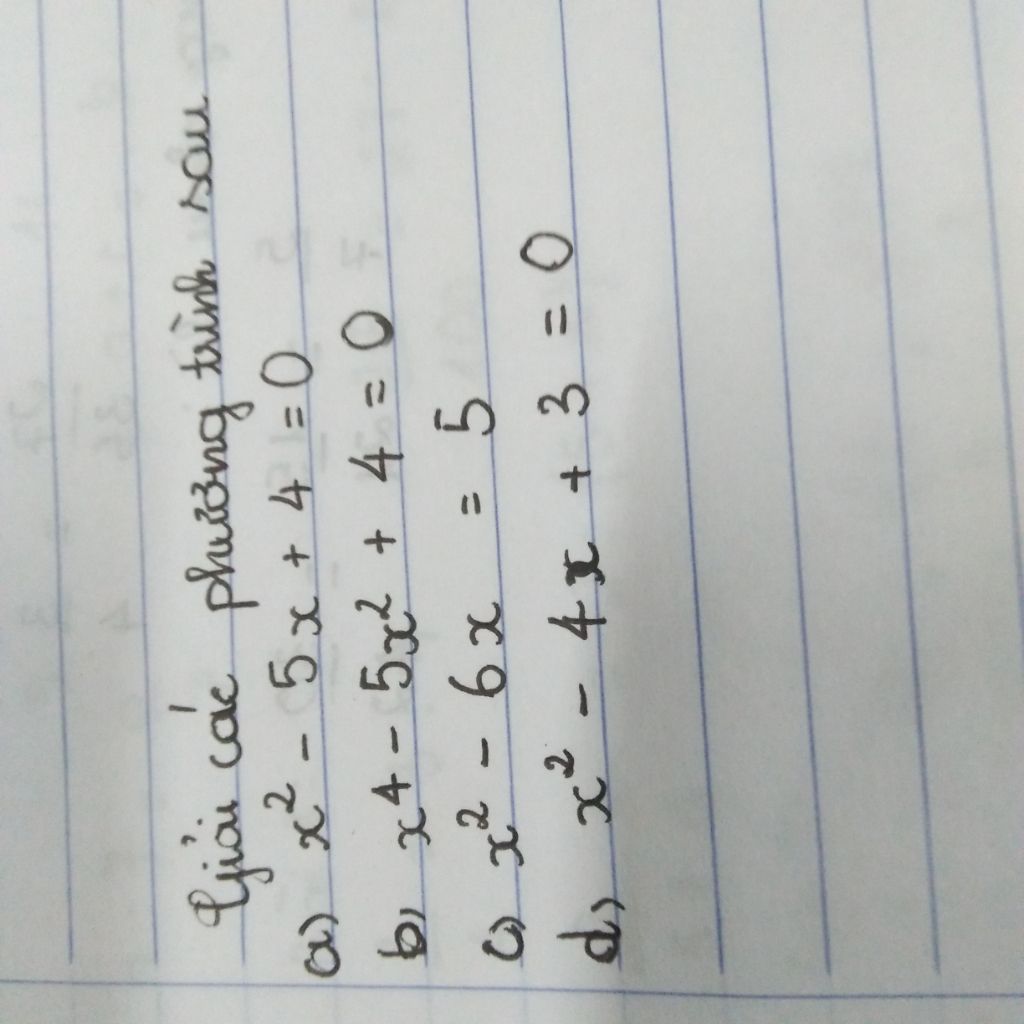 Giải các phương trình sau
a) x² - 5x + 4 = 0
b) x⁴ - 5x² + 4 = 0
c) x² - 6x = 5
d) x² - 4x + 3 = 0